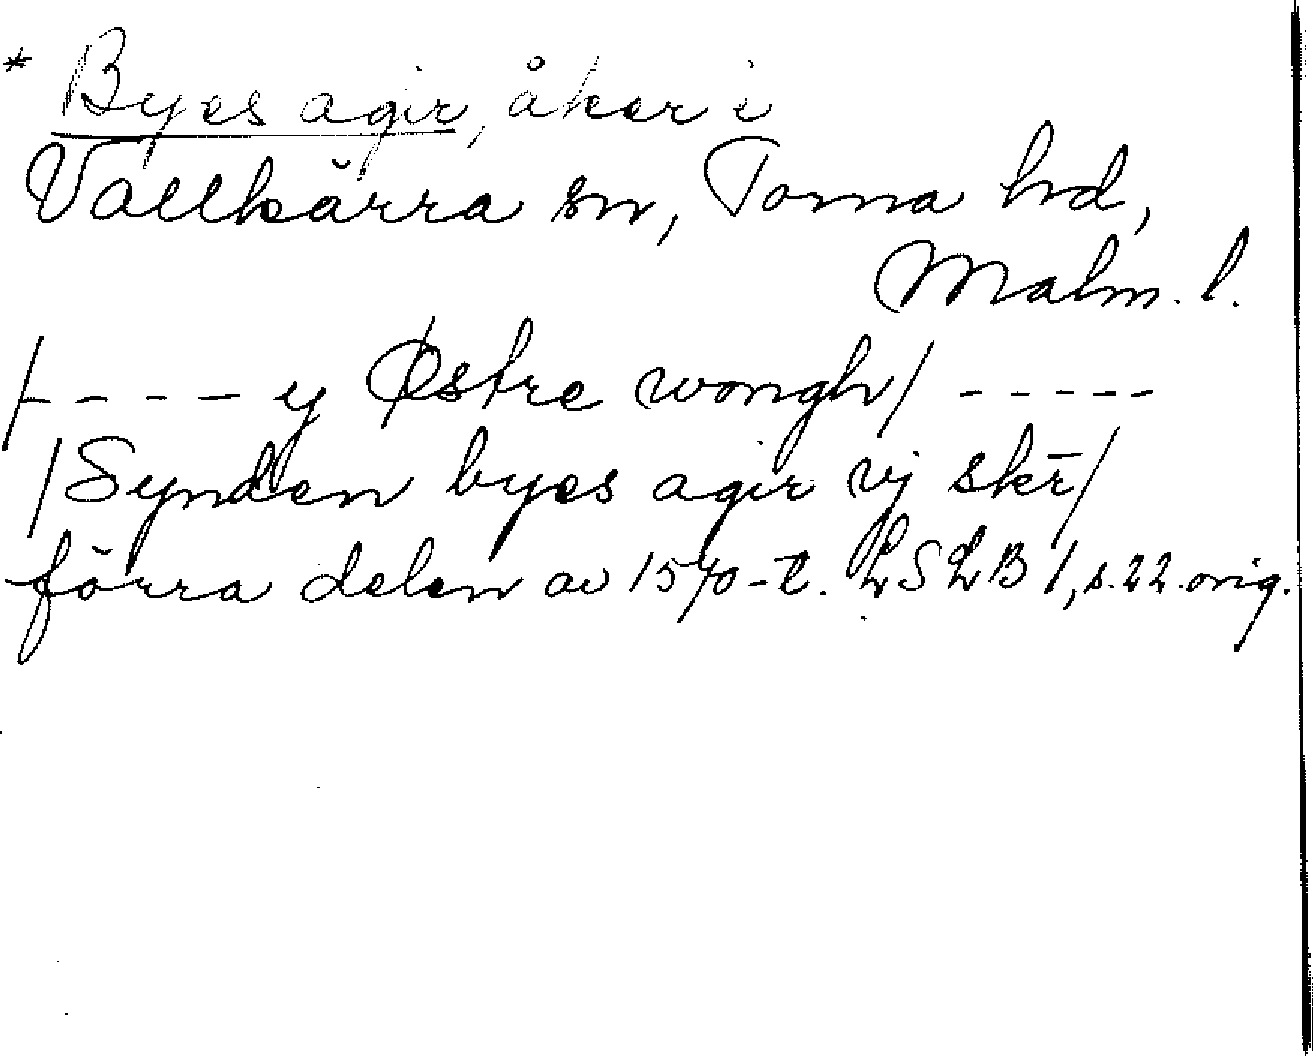 * Byes agir, åker i
Vallkärra sn, Torna hd,
Malm. l.
/- - - - - y Østre wongh/ - - - - -
/Synden byes agir vj skr̄/
förra delen av 1570-t. LSLB 1, s. 22. orig.